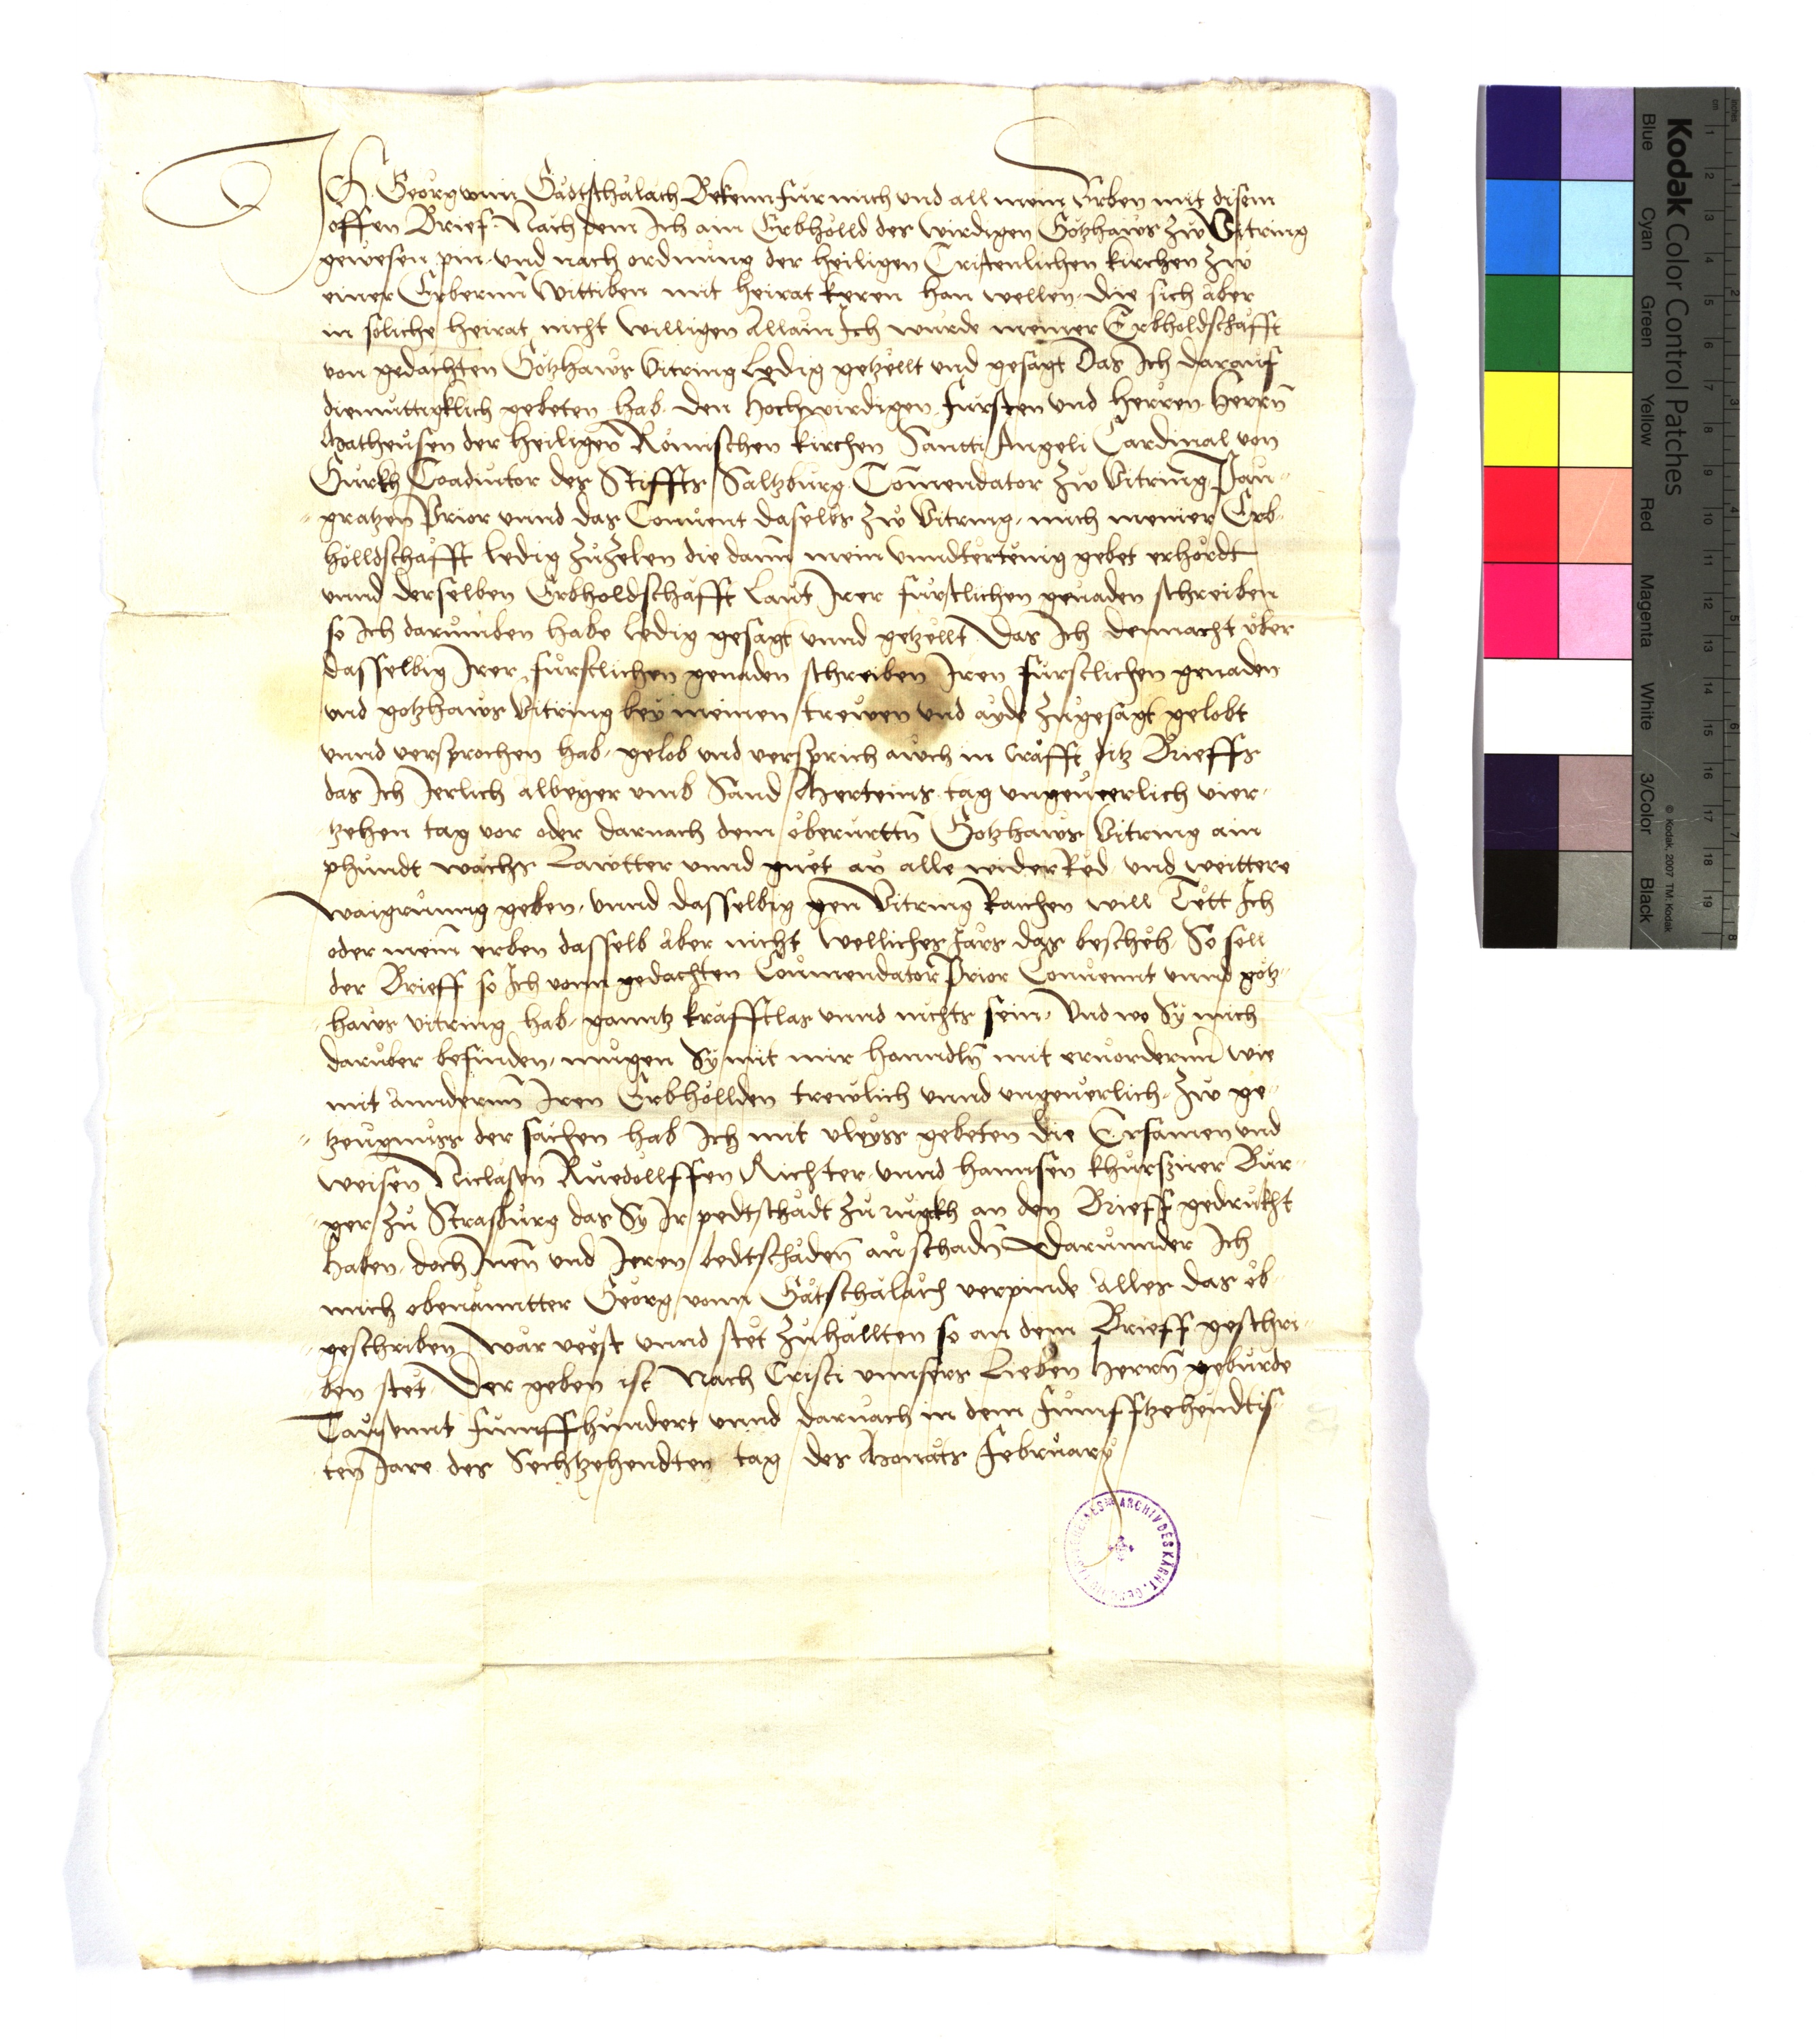 Ich Georg vonn Gadtschalach Bekenn fur mich vnd all mein Erben mit disem
offen Brief. Nach dem Ich ain Erbholld des wirdigen Gotzhaws zw Vitring
gewesen pin. vnd nach ordnung der heiligen Cristenlichen kirchen zw
einer Erbernn Wittiben mit heirat keren han wellen. die sich aber
in soliche heirat nicht willigen Allain Ich wurde meiner Erbholdschafft
von gedachten Gotzhaws Vitring ledig getzellt vnd gesagt Das Ich darauf
diemuttigklich gebeten hab. den hochwirdigen fursten vnd herren. herrn
Matheusen der heiligen Romischen kirchen Sancti Angeli Cardinal von
Gurkh Coadiutor des Stiffts Saltzburg Comendator zw Vitring Pan-
gratzen Prior vnnd das Conuent daselbs zw Vitring. mich meiner Erb-
holldschafft ledig zuzelen die dann mein vnndtertenig gebet erhordt
vnnd derselben Erbholdschafft laut Irer furstlichen genaden schreiben
so Ich darumben habe ledig gesagt vnnd getzellt. Das Ich dennacht vber
dasselbig Irer furstlichen genaden schreiben Iren furstlichen genaden
vnd gotzhaws Vitring bey meinen trewen vnd ayde zugesagt gelobt
vnnd versprochen hab. gelob vnd versprich auch in crafft ditz Brieffs
das Ich Jerlich albeger vmb Sand Merteins tag vngeueerlich vier-
tzehen tag vor oder darnach dem oberurttn Gotzhaws Vitring ain
phundt wachs Lawtter vnnd guet an alle widerred vnd weittere
waigrunng geben. vnnd dasselbig gen Vitring Raichen will Tett Ich
oder mein erben dasselb aber nicht welliches Jars das bescheh. So soll
der Brieff so Ich vonn gedachten Coumendator Prior Conuennt vnnd gotz-
haws vitring hab. ganntz krafftlas vnnd nichts sein. Vnd wo Sy mich
daruber befinden. mugen Sy mit mir hanndln mit eruorderun wie
mit annderun Iren Erbhollden trewlich vnnd vngeuerlich. Zw ge-
tzeugnuss der sachen hab Ich mit vleyss gebeten die Ersamen vnd
weisen Niclasen Ruedollffen Richter. vnnd hannsen khurszner Bur-
ger zu Strasburg das Sy Ir pedtschadt zu rugkh an den Brieff gedrukht
haben. doch Inen vnd Ieren bedtschaden an schadn Darunnder Ich
mich obenanntter Georg vonn Gatschalach verpinde Alles das ob-
geschriben. war veest vnnd stet zuhallten so an dem Brieff geschri-
ben stet. Der geben ist Nach Cristi vnnsers Lieben herrn geburde
Tausennt Funffhundert vnnd darnach in dem Funfftzehendtis-
ten Jare. des Sechtzehendten tag des Monats February
Kodak Color Control Patches
Blue Cyan Green Yellow Red Magenta White 3/Color Black
© Kodak, 2007 TM: Kodak
cm 1 2 3 4 5 6 7 8 9 10 11 12 13 14 15 16 17 18 19
inches 1 2 3 4 5 6 7 8
ARCHIV DES KÄRNT.